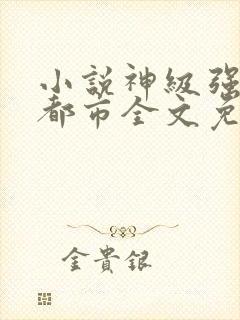 小說神級强
都市全文免
金貴銀